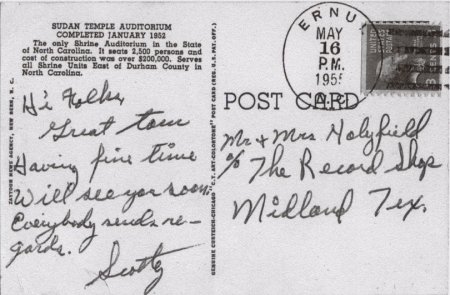 SUDAN TEMPLE AUDITORIUM
COMPLETED JANUARY 1952
The only Shrine Auditorium in the State
of North Carolina. It seats 2,500 persons and
cost of construction was over $200,000. Serves
all Shrine Units East of Durham County in
North Carolina.
Hi Folks,
Great tour
Having fine time
Will see you soon.
Everybody sends re-
gards.
Scotty
ZAYTOUN NEWS AGENCY, NEW BERN, N. C.
GENUINE CURTEICH-CHICAGO "C.T. ART-COLORTONE" POST CARD (REG. U.S. PAT. OFF.)
POST CARD
MAY
16
P.M.
1955
N.C.
Mr + Mrs Holyfield
c/o The Record Shop
Midland Tex.